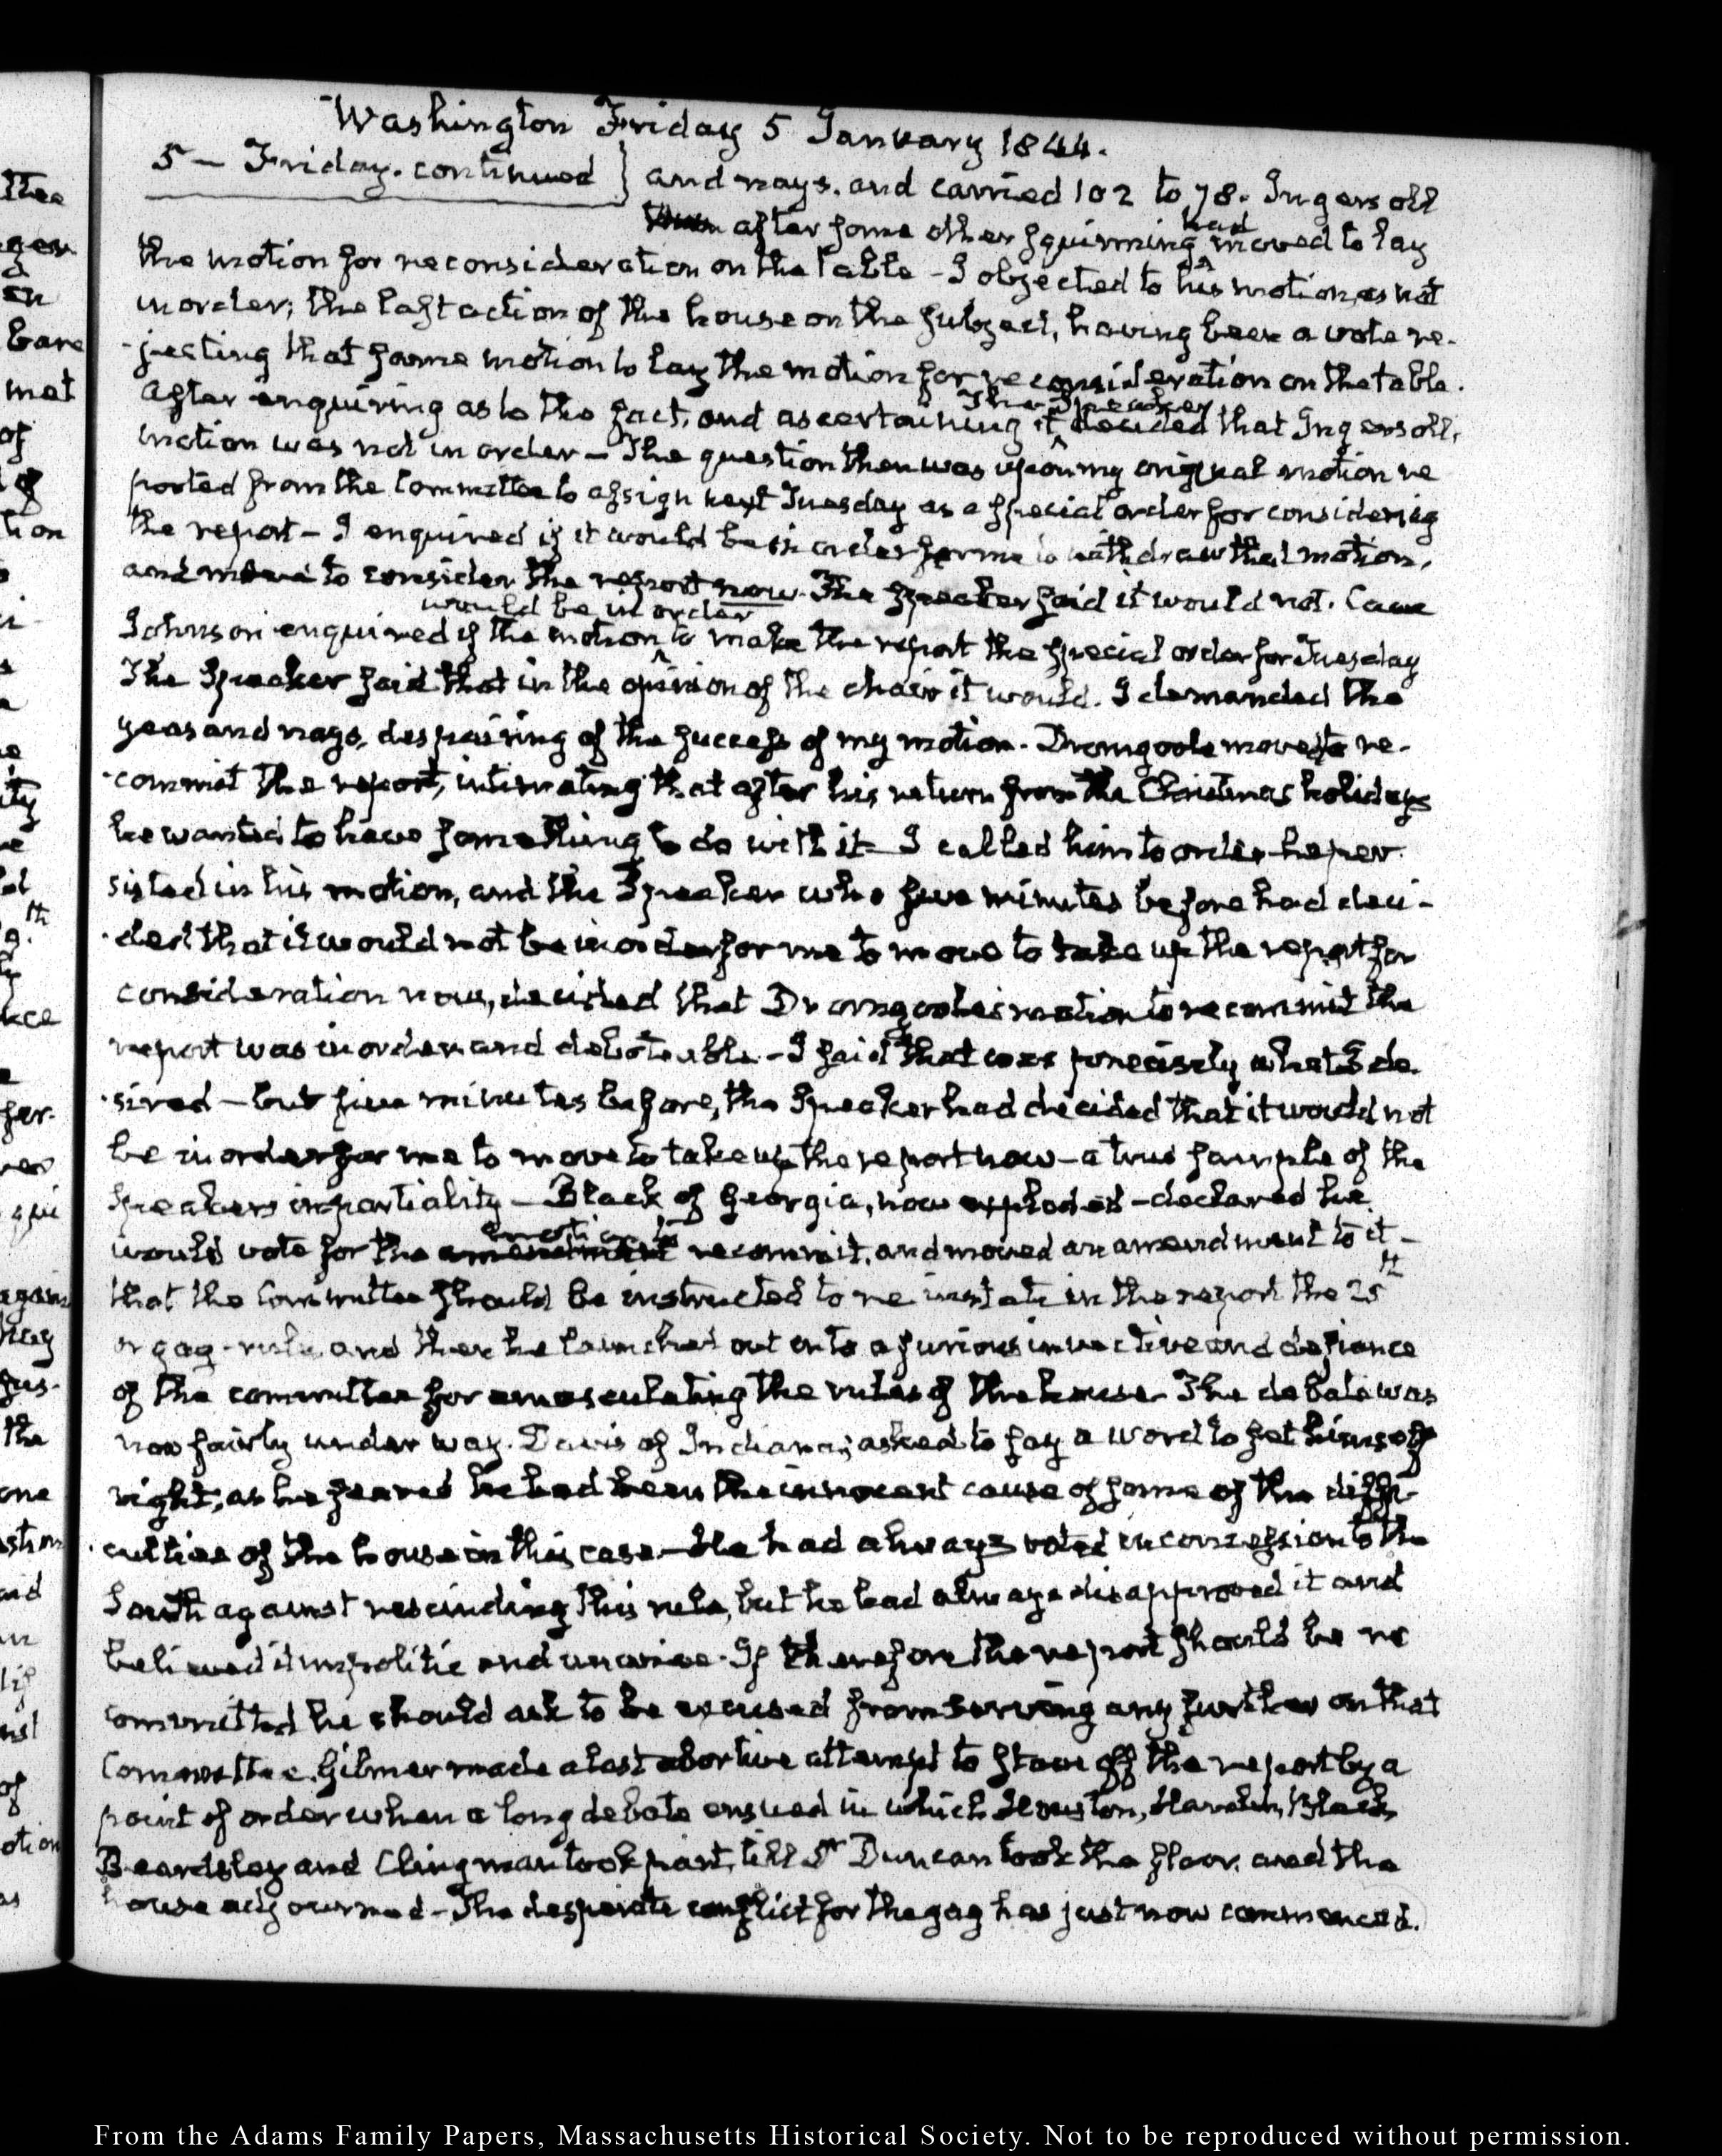 Washington Friday 5 January 1844.
5 — Friday. continued } and nays. and carried 102 to 78. Ingersoll
after some other squirming had moved to lay
the motion for reconsideration on the table - I objected to his motion, as not
in order; the last action of the house on the subject, having been a vote re-
-jecting that same motion to lay the motion for reconsideration on the table.
After enquiring as to the fact, and ascertaining it The Speaker decided that Ingersoll's
motion was not in order — The question then was upon my original motion re
ported from the Committee to assign next Tuesday as a special order for considering
the report — I enquired if it would be in order for me to withdraw that motion,
and move to consider the report now. The Speaker said it would not. Cave
Johnson enquired if the motion would be in order to make the report the special order for Tuesday
The Speaker said that in the opinion of the chair it would. I demanded the
yeas and nays, despairing of the success of my motion. Dromgoole moved to re-
-commit the report, intimating that after his return from the Christmas holidays
he wanted to have something to do with it — I called him to order — he per
sisted in his motion, and the Speaker who five minutes before had deci-
-ded that it would not be in order for me to move to take up the report for
consideration now, decided that Dromgoole's motion to recommit the
report was in order and debateable - I said that was precisely what I de
-sired — but five minutes before, the Speaker had decided that it would not
be in order for me to move to take up the report now — a true sample of the
Speakers impartiality — Black of Georgia, now exploded — declared he
would vote for the motion to recommit, and moved an amendment to it —
that the Committee should be instructed to reinstate in the report the 25th
or gag-rule, and then he launched out into a furious invective and defiance
of the committee for emasculating the rules of the house. The debate was
now fairly under way. Davis of Indiana, asked to say a word to set himself
right, as he feared he had been the innocent cause of some of the diffi-
culties of the house in this case — He had always voted in concession to the
South against rescinding this rule, but he had always disapproved it and
believed it impolitic and unwise. If therefore the report should be re
committed he should ask to be excused from serving any further on that
Committee. Gilmer made a last abortive attempt to stave off the report by a
point of order when a long debate ensued in which Houston, Hardin, Black,
Beardsley and Clingman took part, till Dr Duncan took the floor, and the
house adjourned — The desperate conflict for the gag has just now commenced.
From the Adams Family Papers, Massachusetts Historical Society. Not to be reproduced without permission.